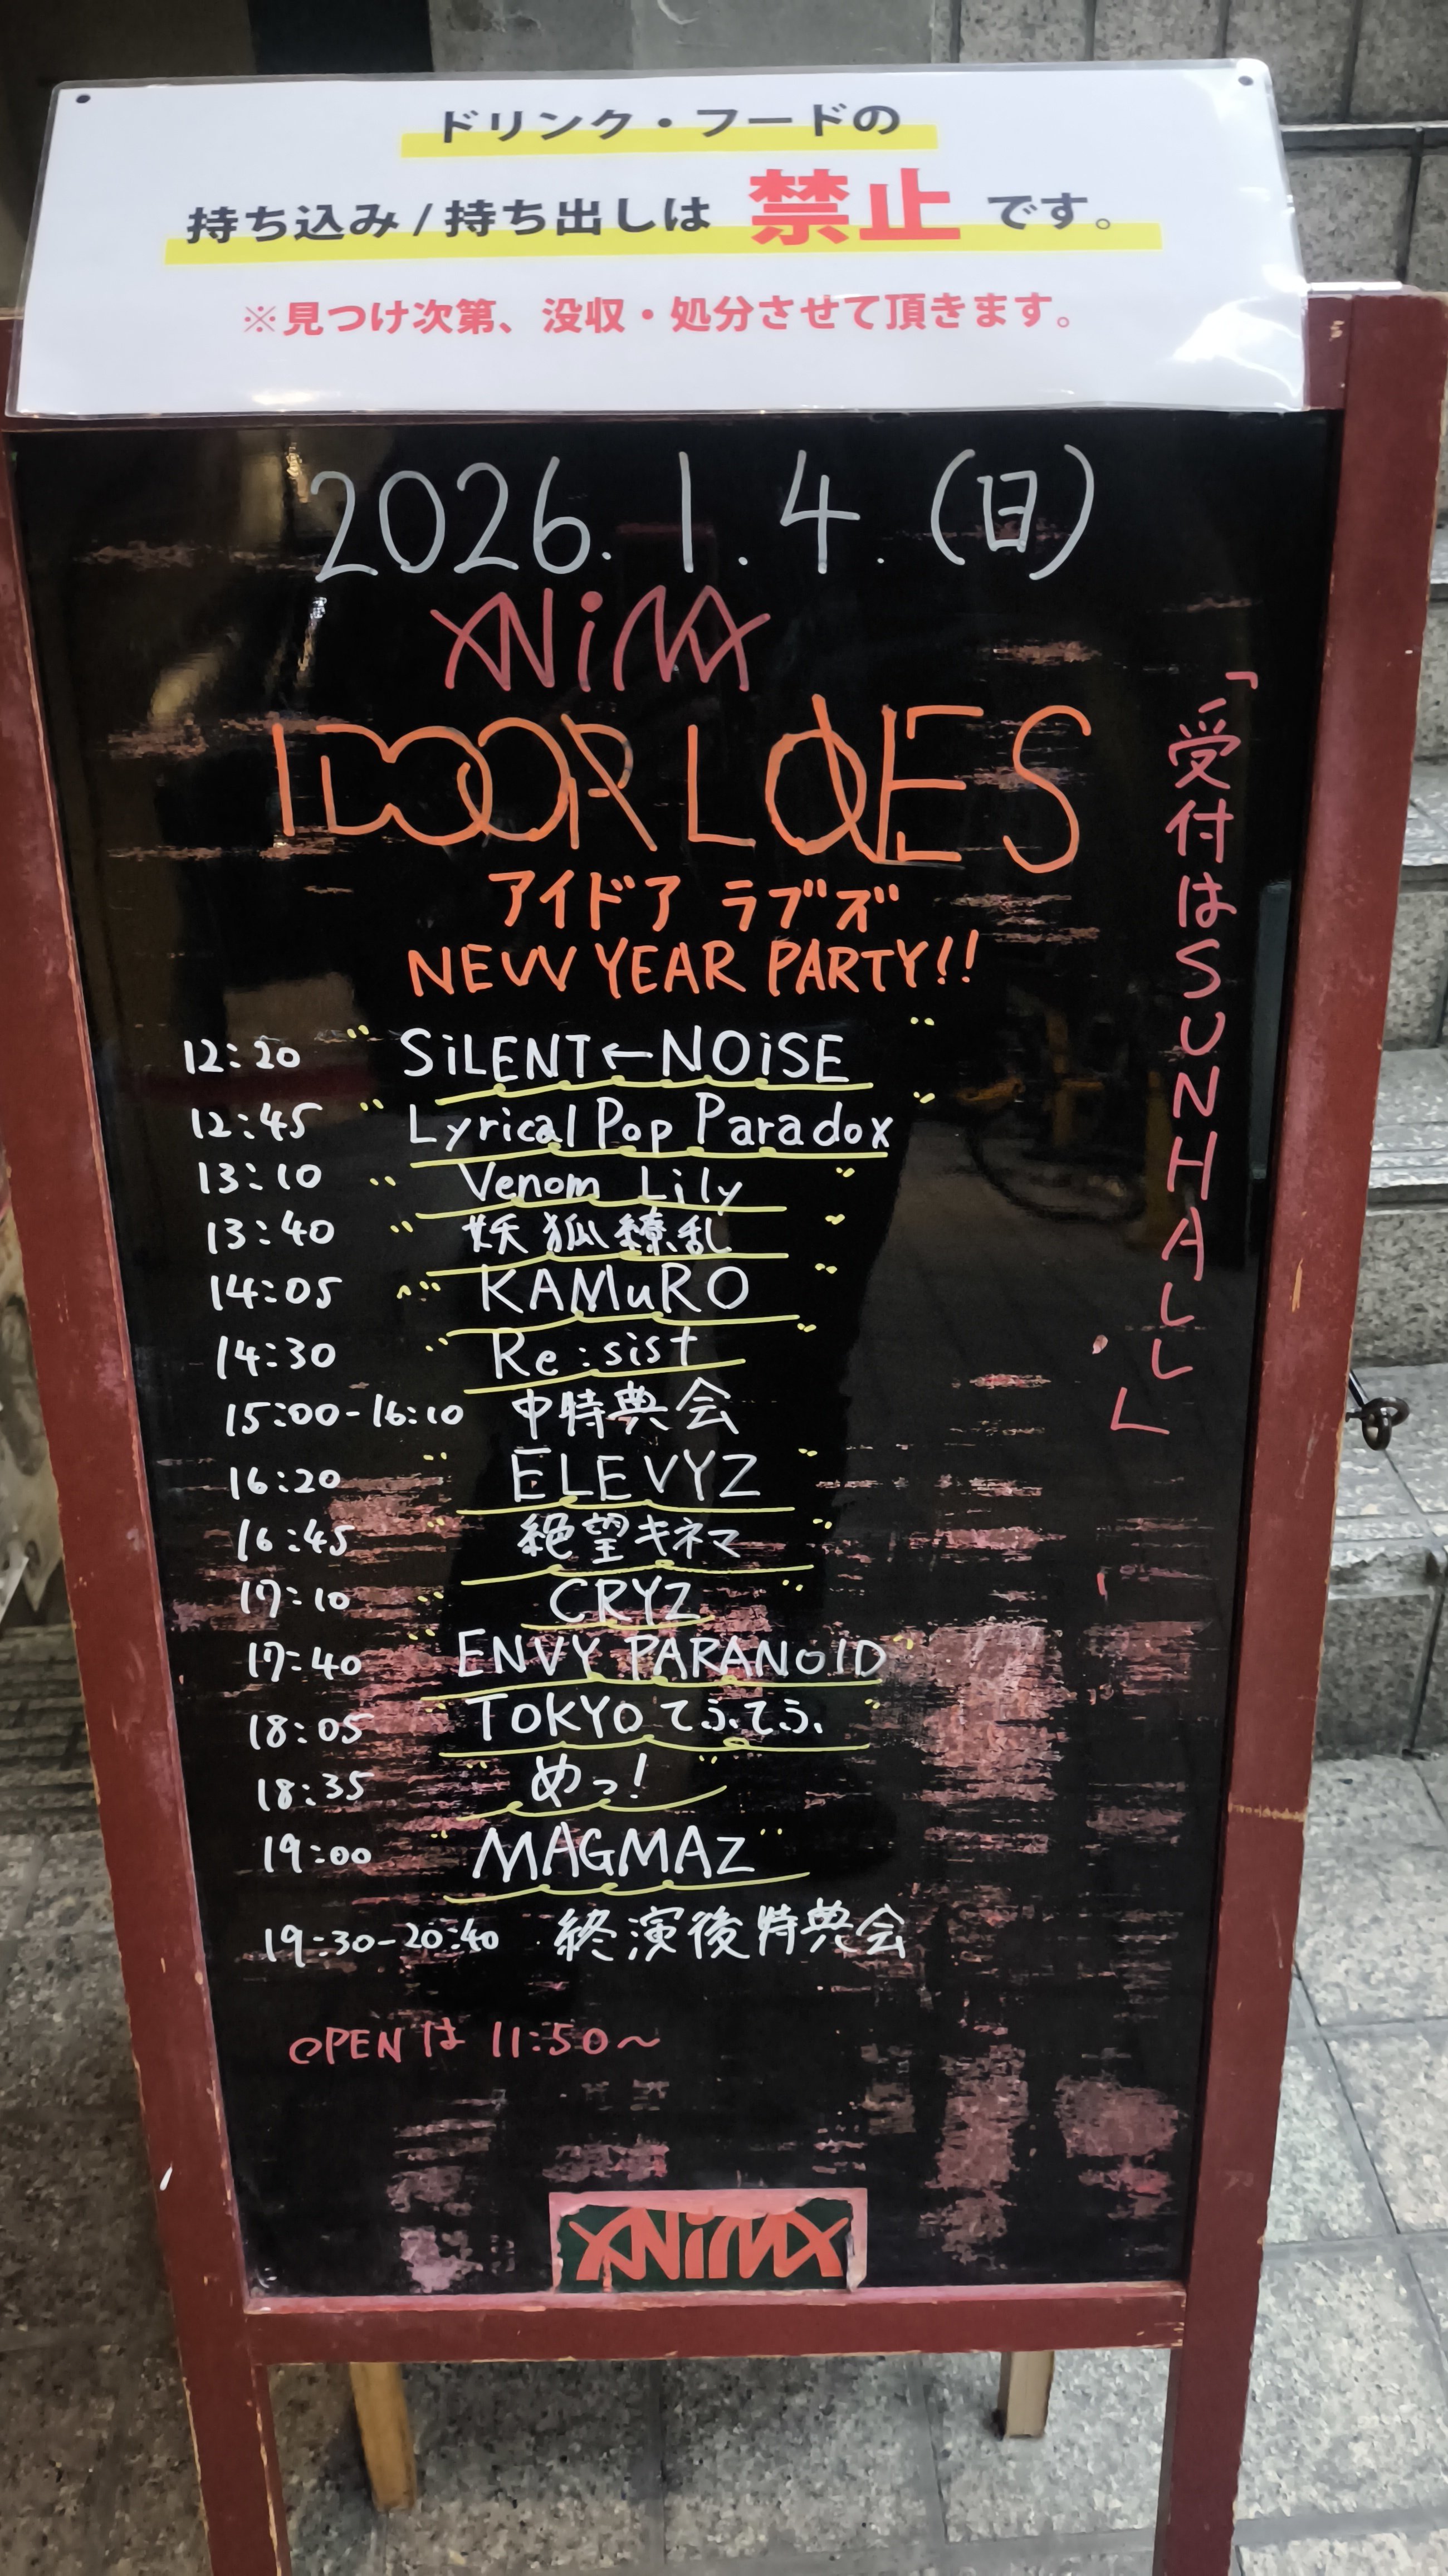 ドリンク・フードの
持ち込み/持ち出しは 禁止 です。
※見つけ次第、没収・処分させて頂きます。
2026.1.4.(日)
ANiMA
IDOOR LOVES
アイドア ラブズ
NEW YEAR PARTY!!
「受付はSUNHALL」
12:20 SiLENT←NOiSE
12:45 Lyrical Pop Paradox
13:10 Venom Lily
13:40 妖狐繚乱
14:05 KAMuRO
14:30 Re:sist
15:00-16:10 中特典会
16:20 ELEVYZ
16:45 絶望キネマ
17:10 CRYZ
17:40 ENVY PARANOID
18:05 TOKYOてふてふ
18:35 めっ!
19:00 MAGMAZ
19:30-20:40 終演後特典会
OPENは 11:50〜
ANiMA